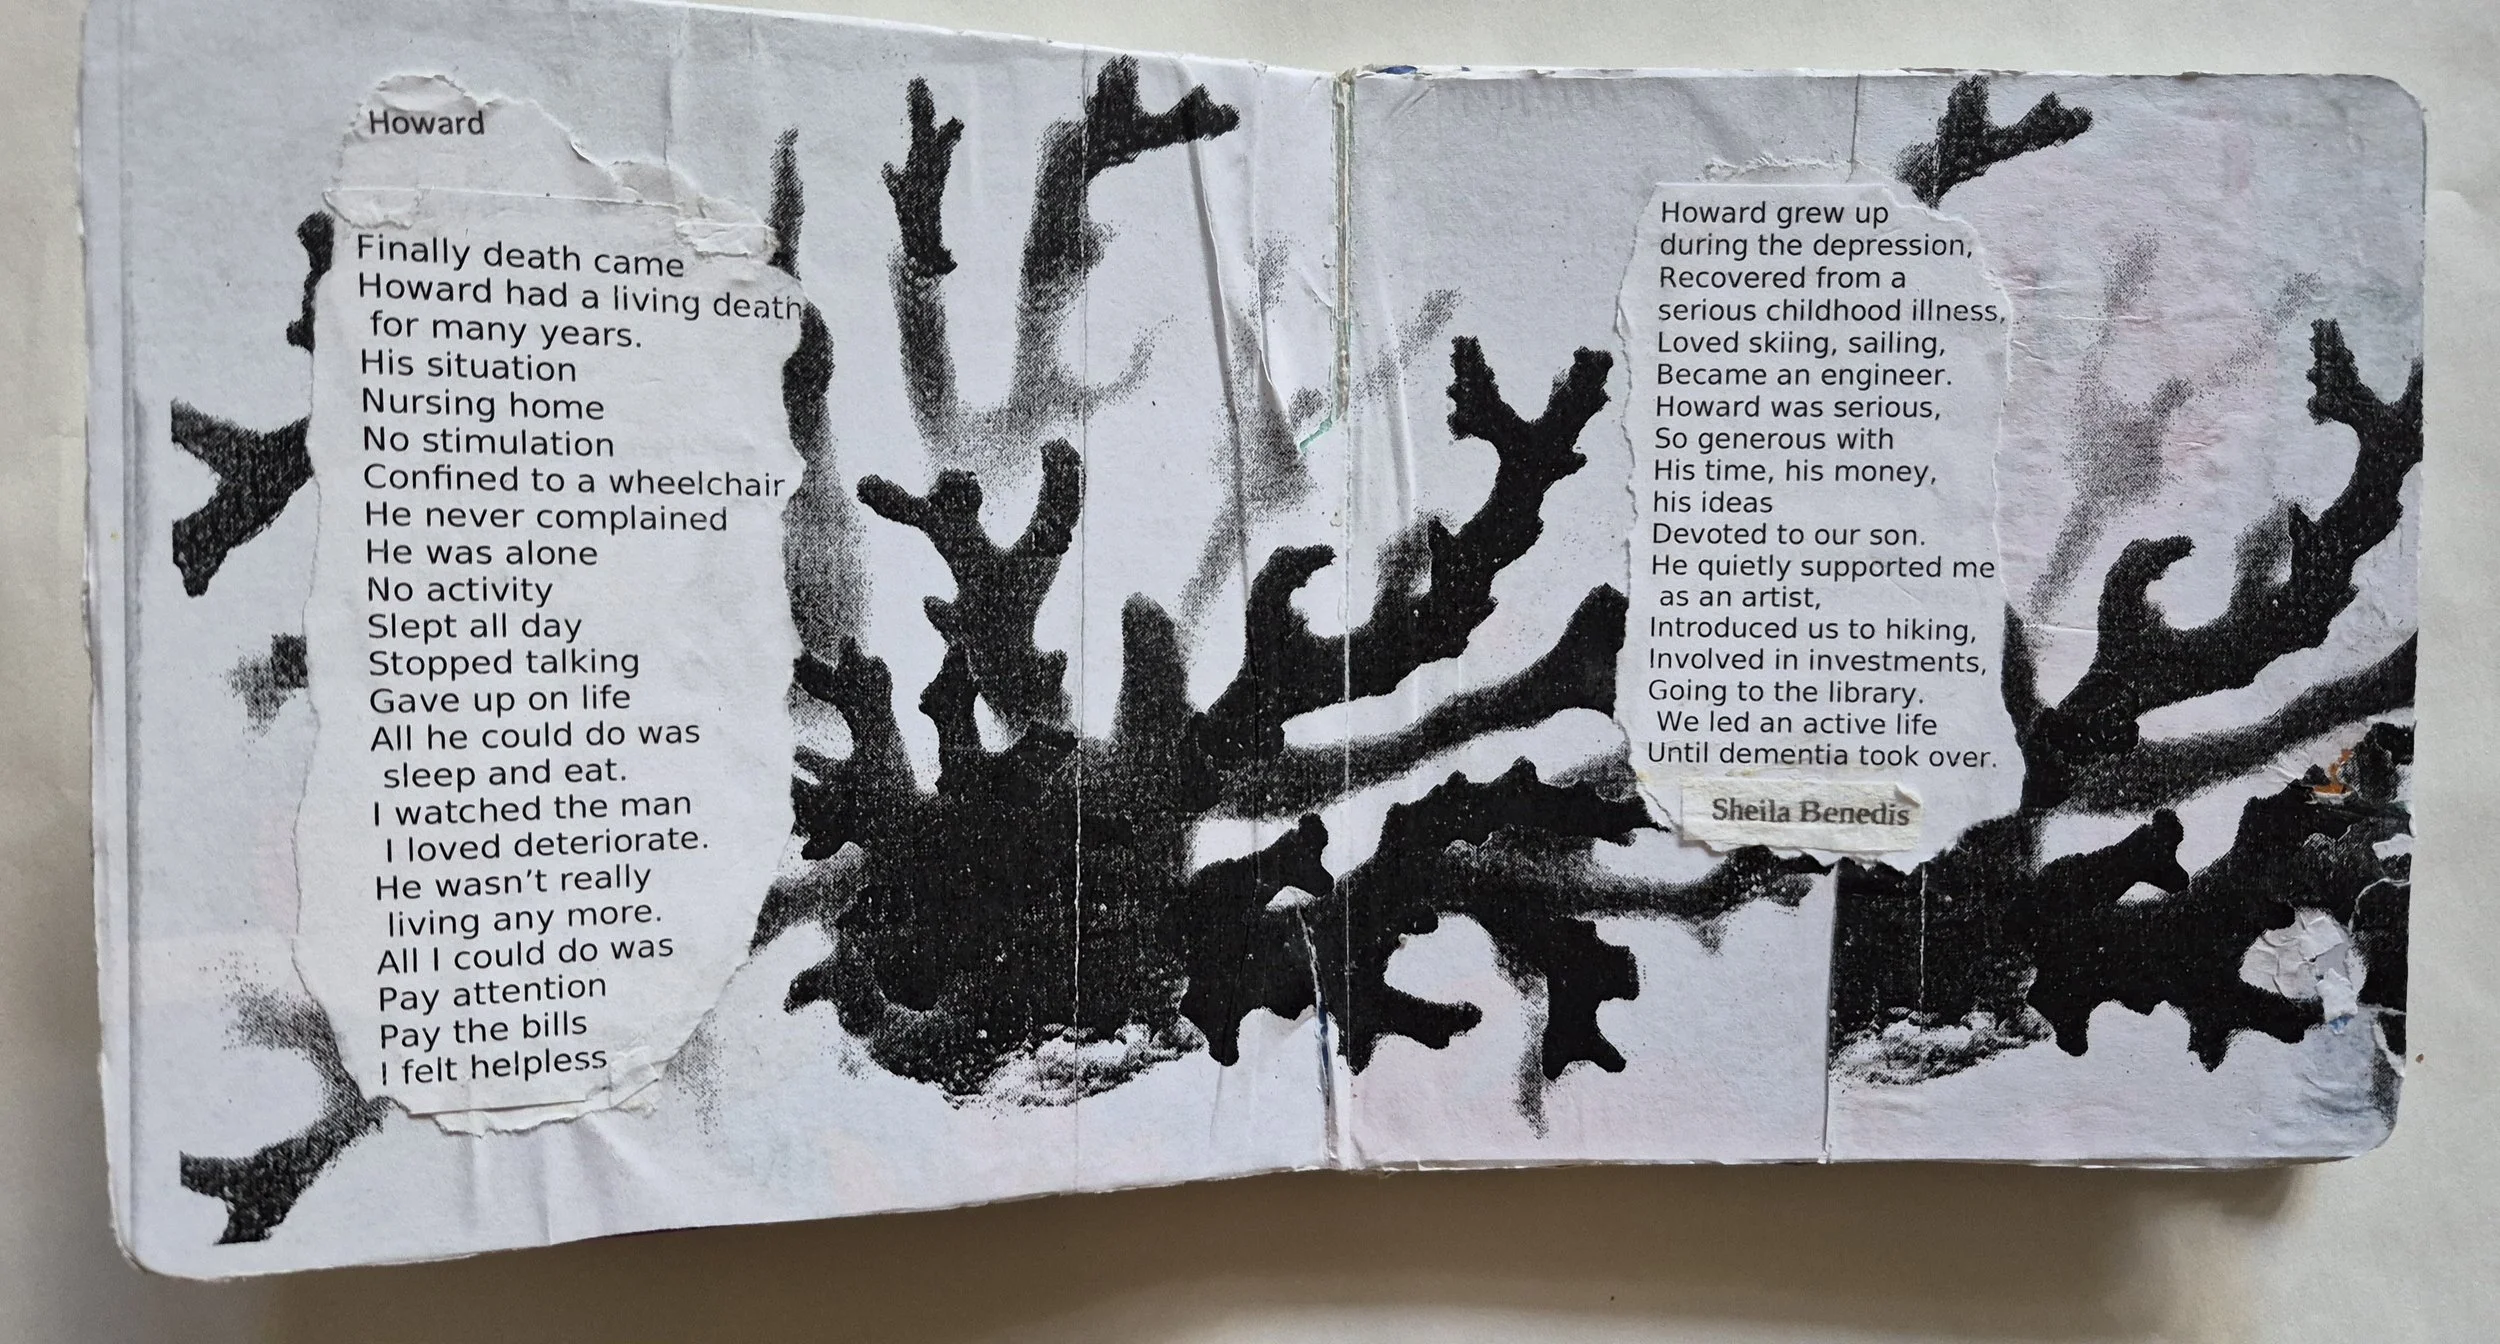 Howard
Finally death came
Howard had a living death
for many years.
His situation
Nursing home
No stimulation
Confined to a wheelchair
He never complained
He was alone
No activity
Slept all day
Stopped talking
Gave up on life
All he could do was
sleep and eat.
I watched the man
I loved deteriorate.
He wasn't really
living any more.
All I could do was
Pay attention
Pay the bills
I felt helpless
Howard grew up
during the depression,
Recovered from a
serious childhood illness,
Loved skiing, sailing,
Became an engineer.
Howard was serious,
So generous with
His time, his money,
his ideas
Devoted to our son.
He quietly supported me
as an artist,
Introduced us to hiking,
Involved in investments,
Going to the library.
We led an active life
Until dementia took over.
Sheila Benedis